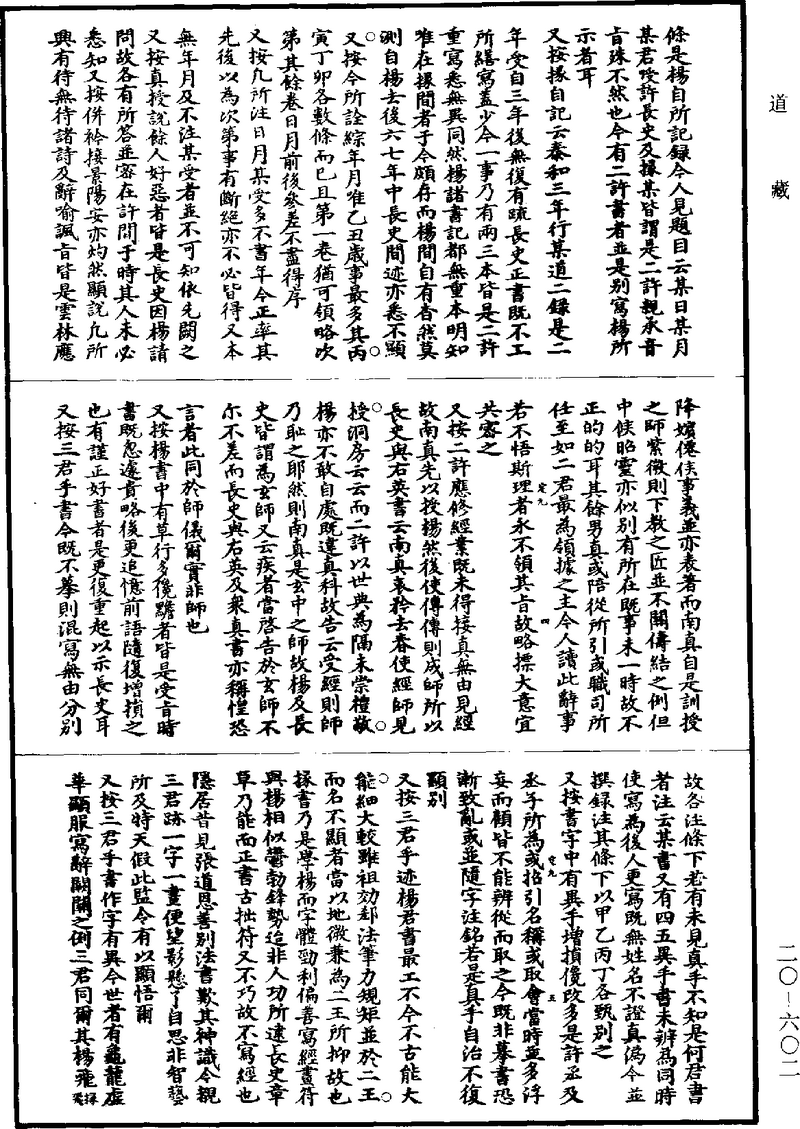 道藏
條是楊自所記録今人見題目云某日某月
某君喻許長史及掾某皆謂是二許親承音
旨殊不然也今有二許書者並是别寫楊所
示者耳
又按掾自記云泰和三年行某道二録是二
年受自三年後無復有疏長史正書既不工
所繕寫蓋少今一事乃有兩三本皆是二許
重寫悉無異同然楊諸書記都無重本明知
唯在掾間者于今頗存而楊間自有杳然莫
測自楊去後六七年中長史間迹亦悉不顯
又按今所詮綜年月唯乙丑歲事最多其丙
寅丁卯各數條而已且第一卷猶可領略次
第其餘卷日月前後參差不盡得序
又按凡所注日月某受多不書年今正率其
先後以為次第事有斷絶亦不必皆得又本
無年月及不注某受者並不可知依先闕之
又按真授説餘人好惡者皆是長史因楊請
問故各有所答並密在許間于時其人未必
悉知又按併衿接景陽安亦灼然顯說凡所
興有待無待諸詩及辭喻諷旨皆是雲林應
降嬪僊侯事義並亦表著而南真自是訓授
之師紫微則下教之匠並不關儔結之例但
中候昭靈亦似别有所在既事未一時故不
正的的耳其餘男真或陪從所引或職司所
任至如二君最為領據之主今人讀此辭事
若不悟斯理者永不領其旨故略摽大意宜
共密之
定九
四
又按二許應修經業既未得接真無由見經
故南真先以授楊然後使傳傳則成師所以
長史與右英書云南真哀矜去春使經師見
授洞房云云而二許以世典為隔未崇禮敬
楊亦不敢自處既違真科故告云受經則師
乃恥之耶然則南真是玄中之師故楊及長
史皆謂為玄師又云疾者當啓告於玄師不
尔不差而長史與右英及衆真書亦稱惶恐
言者此同於師儀爾實非師也
又按楊書中有草行多儳黵者皆是受旨時
書既怱遽貴略後更追憶前語隨復增損之
也有謹正好書者是更復重起以示長史耳
又按三君手書今既不摹則混寫無由分别
故各注條下若有未見真手不知是何君書
者注云某書又有四五異手書未辨為同時
使寫為後人更寫既無姓名不證真僞今並
撰録注其條下以甲乙丙丁各甄别之
又按書字中有異手增損儳改多是許丞及
丞子所為或招引名稱或取會當時並多浮
妄而顧皆不能辨從而取之今既非摹書恐
漸致亂或並隨字注銘若是真手自治不復
顯别
定九
五
又按三君手迹楊君書最工不今不古能大
能細大較雖祖効郄法筆力規矩並於二王
而名不顯者當以地微兼為二王所抑故也
掾書乃是學楊而字體勁利偏善寫經畫符
與楊相似鬱勃鋒勢迨非人功所逮長史章
草乃能而正書古拙符又不巧故不寫經也
隱居昔見張道恩善别法書歎其神識今覩
三君跡一字一畫便望影懸了自思非智藝
所及特天假此監令有以顯悟爾
又按三君手書作字有異今世者有龜龍虚
華顯服寫辭闕關之例三君同爾其楊飛掾飛
二〇—六〇二